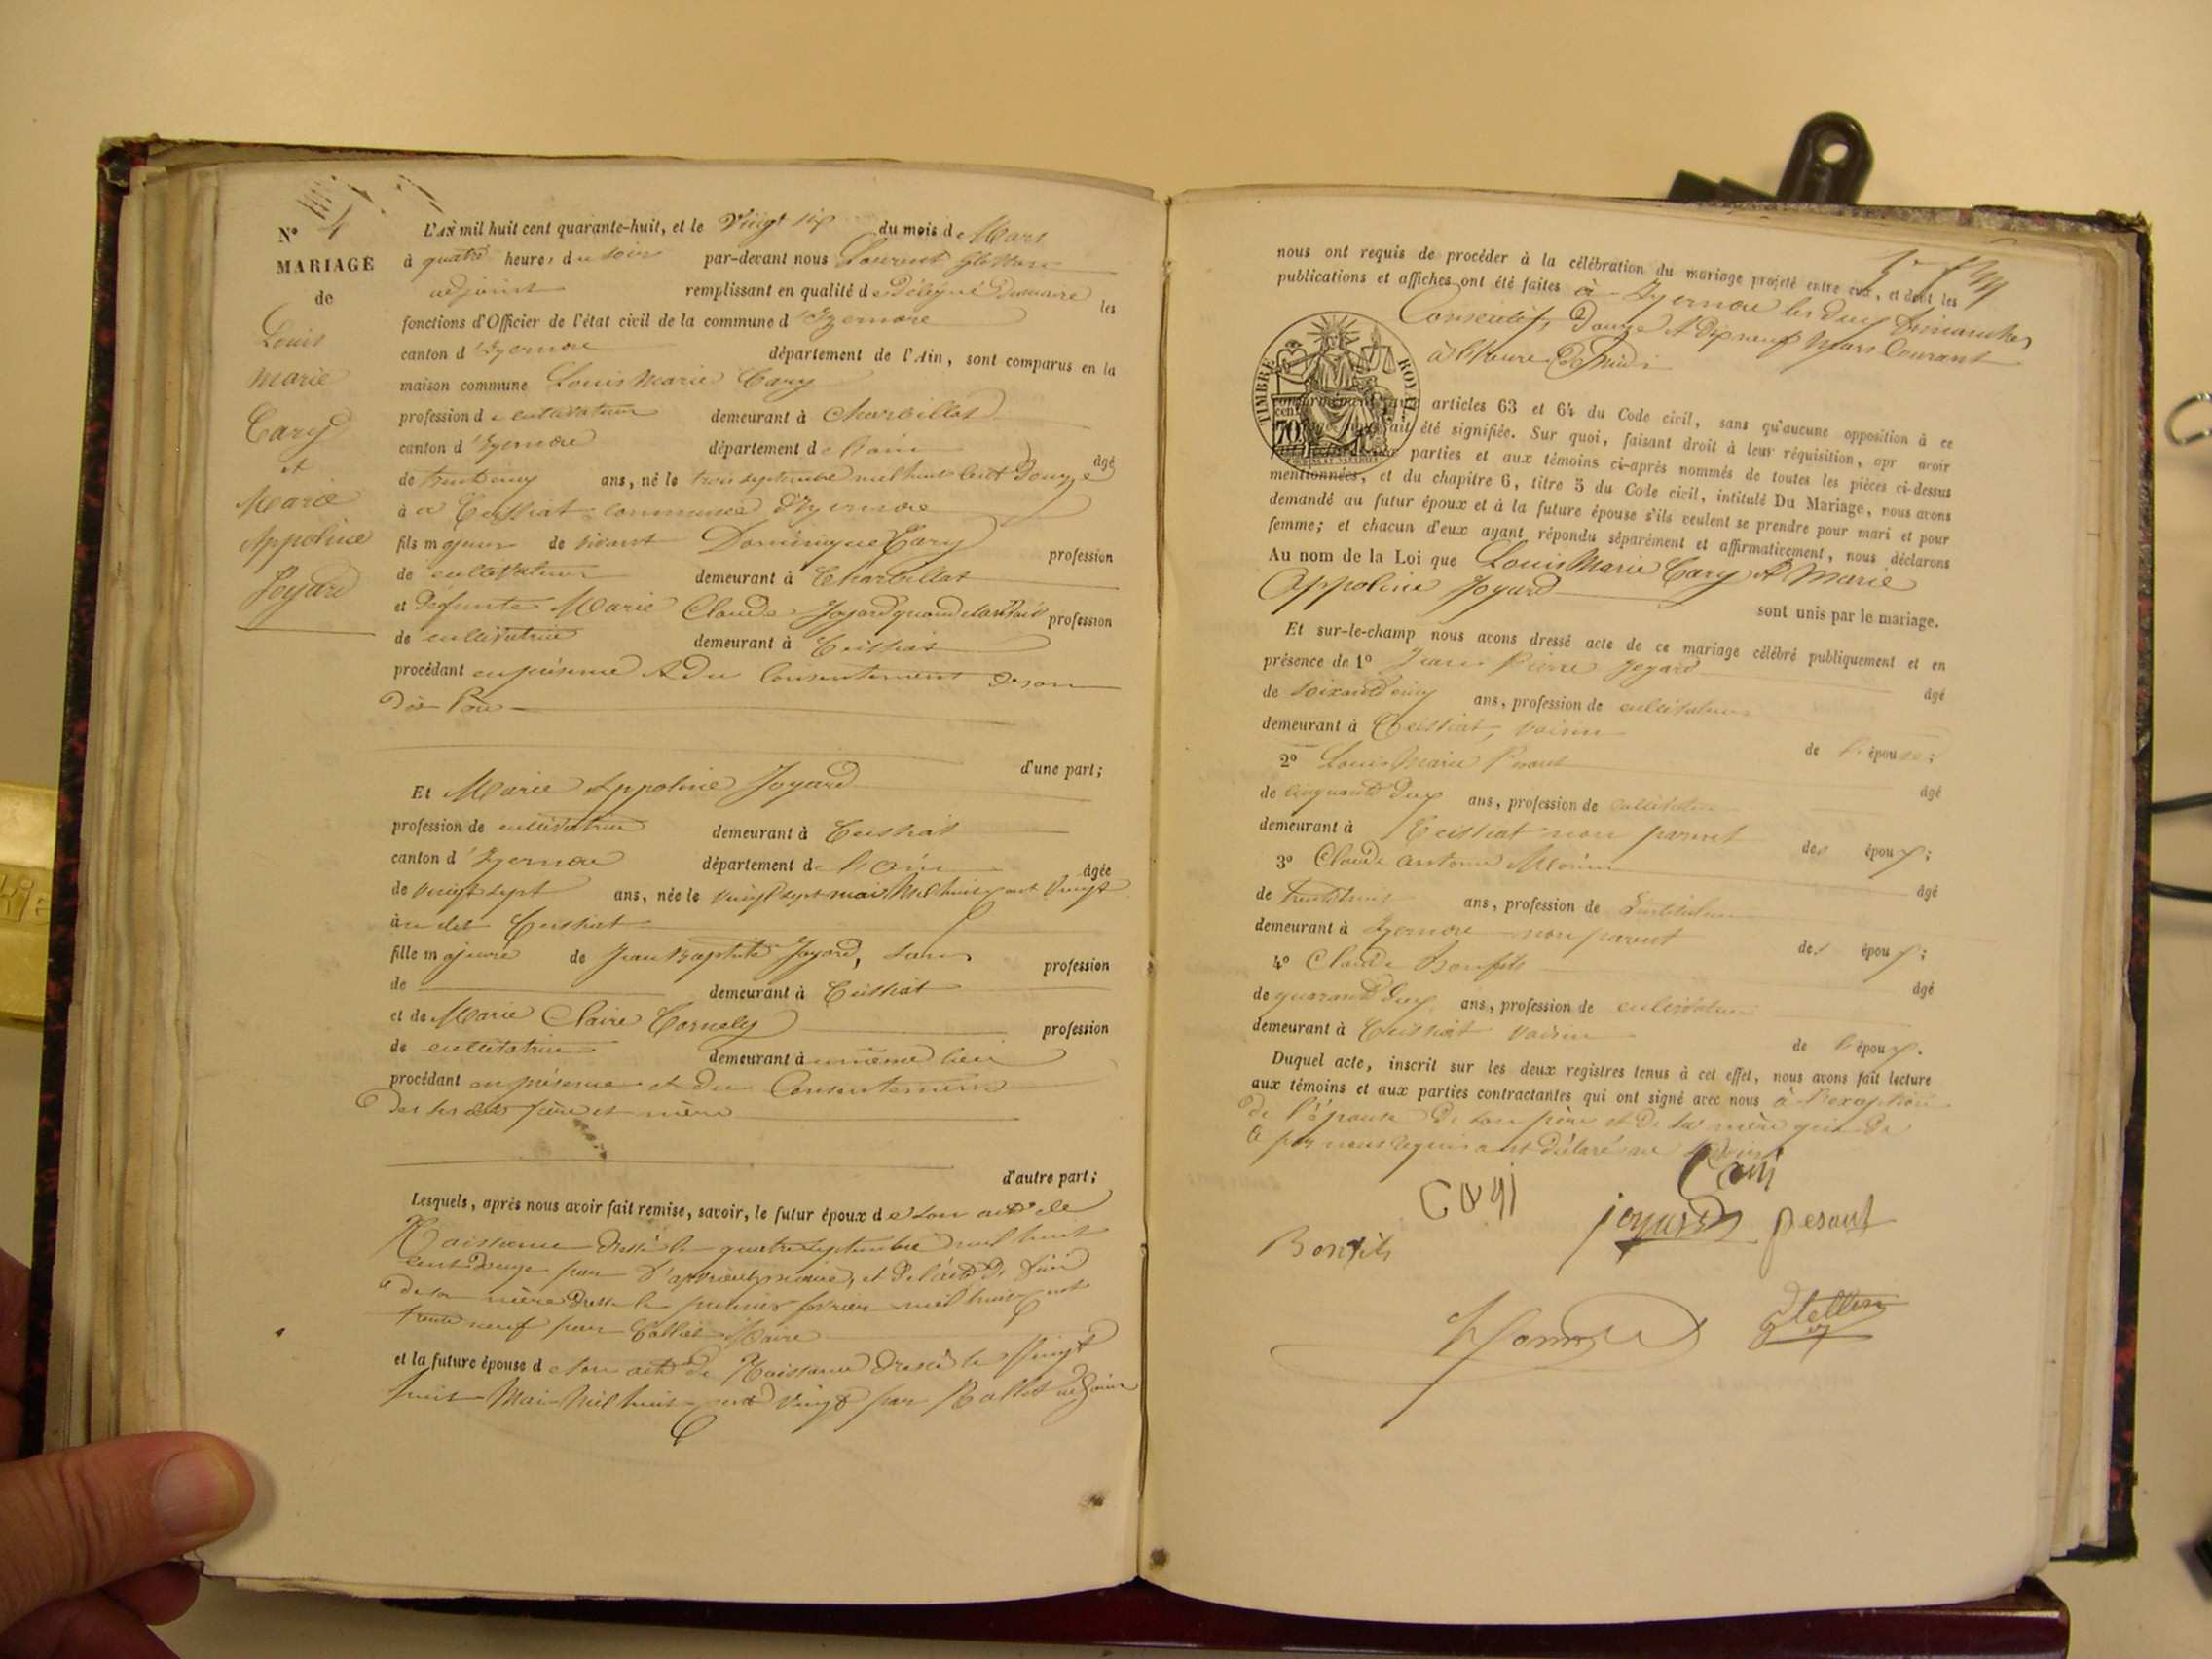 N° 4
MARIAGE
de
Louis
marie
Cary
et
Marie
Appoline
Joyard
L'AN mil huit cent quarante-huit, et le Vingt six du mois de Mars
à quatre heures du soir par-devant nous Laurent
adjoint remplissant en qualité de Délégué Dumaire les
fonctions d'Officier de l'état civil de la commune d'Izernore
canton d'Izernore département de l'Ain, sont comparus en la
maison commune Louis Marie Cary
profession de cultivateur demeurant à Charbillat
canton d'Izernore département de l'ain âgé
de trente cinq ans, né le trois septembre mil huit cent Douze
à a Ceissiat commune d'Izernore
fils majeur de vivant Dominique Cary profession
de cultivateur demeurant à Charbillat
et Défunte Marie Claude Joyard quand elle vivait profession
de cultivatrice demeurant à Ceissiat
procédant en présence et Du Consentement de son
Dit Père
d'une part;
Et Marie Appoline Joyard
profession de cultivatrice demeurant à Ceissiat
canton d'Izernore département de l'Ain âgée
de vingt sept ans, née le vingt sept mai Mil huit cent vingt
à u dit Ceissiat
fille majeure de Jean Baptiste Joyard, sans profession
de demeurant à Ceissiat
et de Marie Claire Cornely profession
de cultivatrice demeurant à u même lieu
procédant en présence et du Consentement
De ses dits père et mère
d'autre part;
Lesquels, après nous avoir fait remise, savoir, le futur époux de son acte de
Naissance dressé le quatre septembre mil huit
cent Douze par maire, et De l'acte De
de sa mère Dressé le premier février mil huit cent
trente neuf par Maire
et la future épouse de son acte de Naissance dressé le Vingt
huit Mai Mil huit cent vingt par adjoint
nous ont requis de procéder à la célébration du mariage projeté entre eux, et dont les
publications et affiches ont été faites à Izernore les deux Dimanches
Consécutifs, Douze et Dix neuf Mars Courant
à l'heure de Midi
TIMBRE ROYAL
70 cent
conformément aux articles 63 et 64 du Code civil, sans qu'aucune opposition à ce
mariage nous ait été signifiée. Sur quoi, faisant droit à leur réquisition, apr avoir
parties et aux témoins ci-après nommés de toutes les pièces ci-dessus
mentionnées, et du chapitre 6, titre 5 du Code civil, intitulé Du Mariage, nous avons
demandé au futur époux et à la future épouse s'ils veulent se prendre pour mari et pour
femme; et chacun d'eux ayant répondu séparément et affirmativement, nous déclarons
Au nom de la Loi que Louis Marie Cary et Marie
Appoline Joyard
sont unis par le mariage.
Et sur-le-champ nous avons dressé acte de ce mariage célébré publiquement et en
présence de 1° Pierre Joyard âgé
de ans, profession de cultivateur
demeurant à Ceissiat, voisin de l'épouse;
2° Louis Marie Pesant âgé
de cinquante deux ans, profession de cultivateur
demeurant à Ceissiat non parent des époux;
3° Claude antoine âgé
de trente trois ans, profession de Instituteur
demeurant à Izernore non parent des époux;
4° Claude Bonfils âgé
de quarante deux ans, profession de cultivateur
demeurant à Ceissiat voisin de l'époux.
Duquel acte, inscrit sur les deux registres tenus à cet effet, nous avons fait lecture
aux témoins et aux parties contractantes qui ont signé avec nous à l'exception
de l'épouse De son père et De sa mère qui de
ce par nous requis ont déclaré ne savoir
Cari
Cari
joyard
pesant
Bonfils